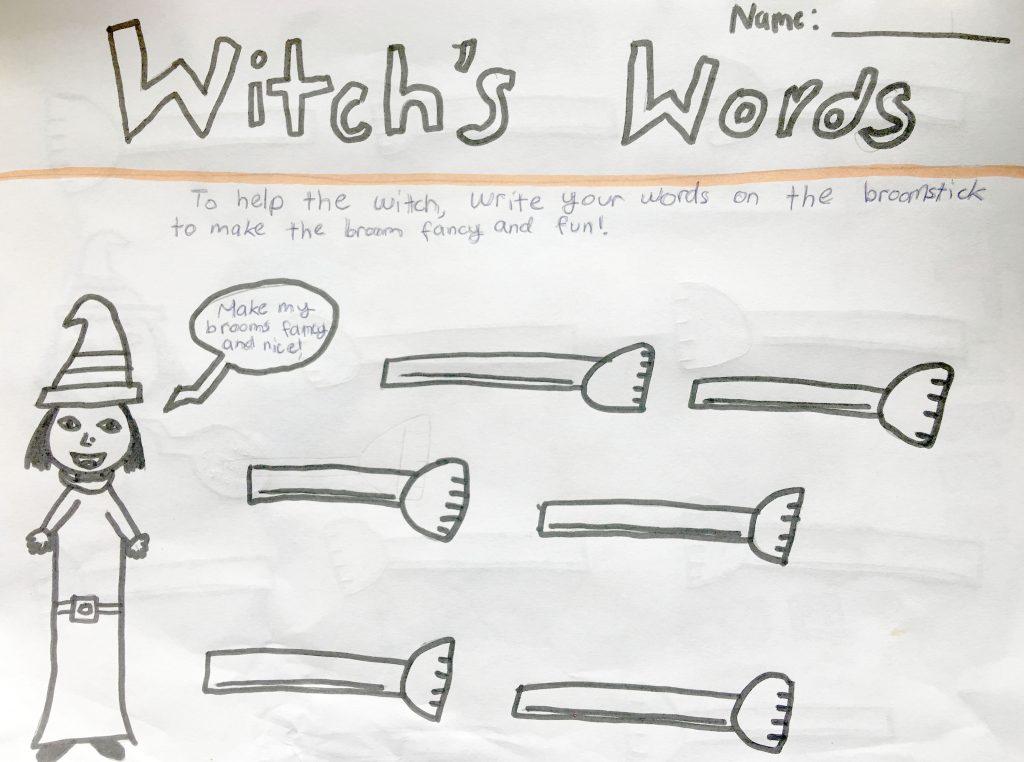 Name:
Witch's Words
To help the witch, write your words on the broomstick
to make the broom fancy and fun!
Make my
brooms fancy
and nice!